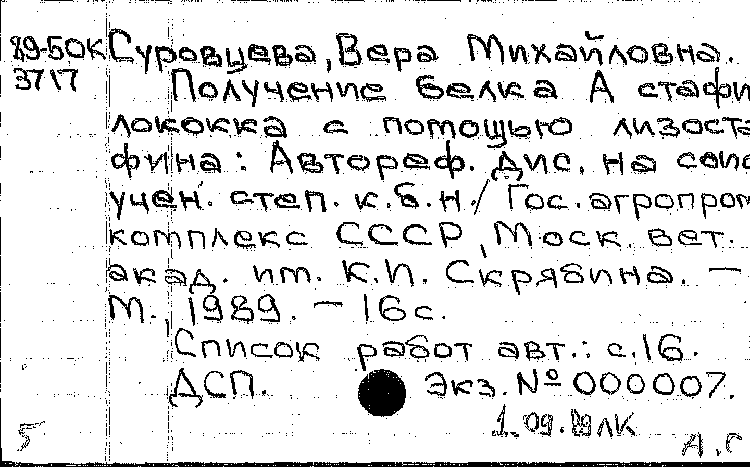 89-50К Суровцева, Вера Михайловна.
3717 Получение белка А стафи
лококка с помощью лизоста
фина: Автореф. дис. на соис
учен. степ. к.б.н./ Гос. агропром
комплекс СССР, Моск. вет.
акад. им. К.И. Скрябина. —
М., 1989. — 16 с.
Список работ авт.: с.16.
ДСП. Экз. № 000007.
1.09.89 ЛК
5 А.Г